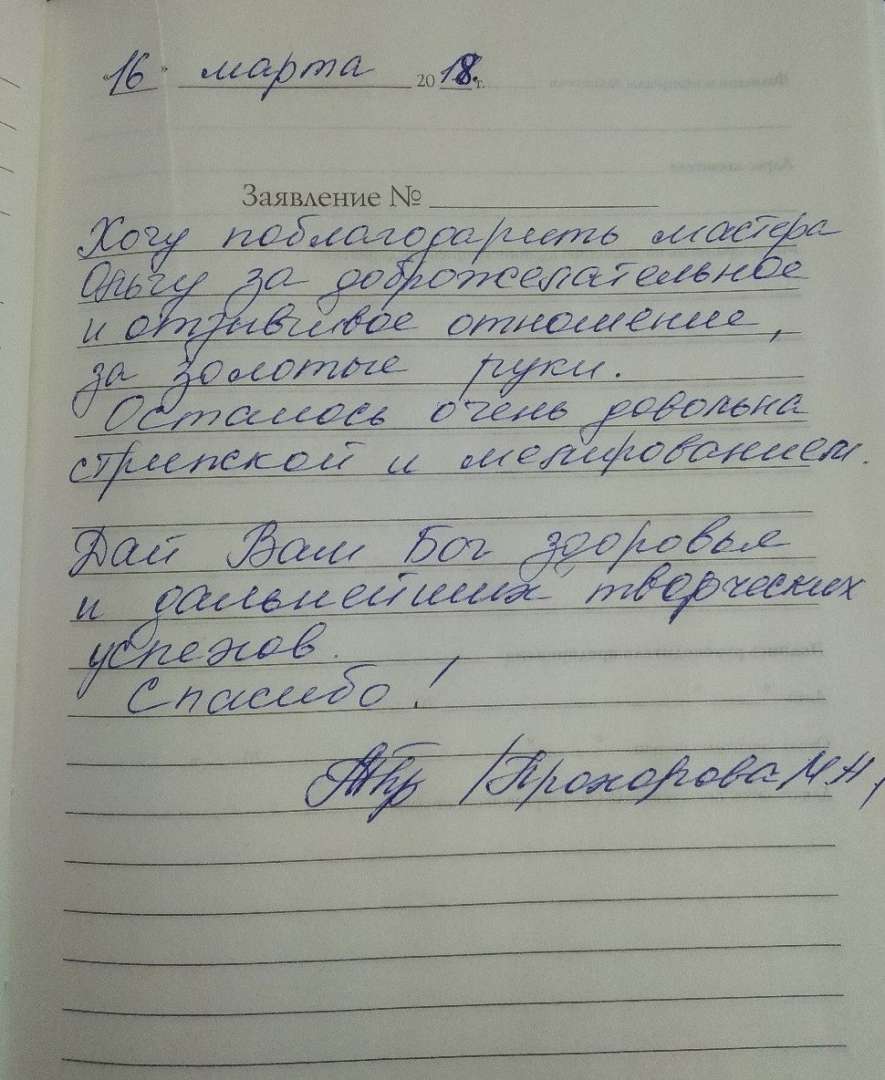 «16» марта 2018 г.
Заявление №
Хочу поблагодарить мастера
Ольгу за доброжелательное
и отзывчивое отношение,
за золотые руки.
Осталось очень довольна
стрижкой и мелированием.
Дай Вам Бог здоровья
и дальнейших творческих
успехов.
Спасибо!
/Прохорова М Н,